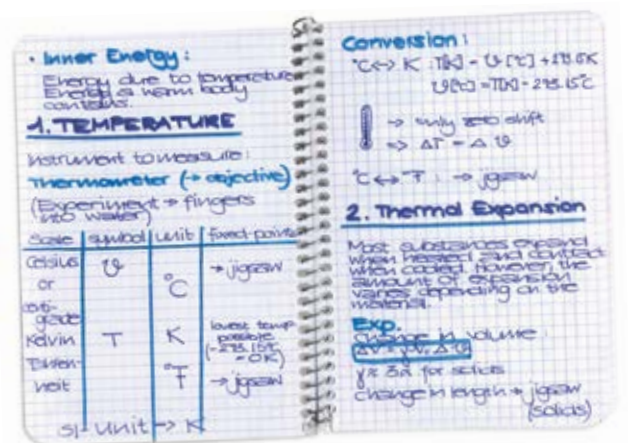 • Inner Energy:
Energy due to temperature
Energy a warm body
contains.
1. TEMPERATURE
Instrument to measure:
Thermometer (→ objective)
(Experiment → fingers
into water)
Scale symbol unit fixed-points
Celsius ϑ °C → jigsaw
or
centi-
grade
Kelvin T K lowest temp. possible (-273.15°C = 0K)
Fahren-
heit °F → jigsaw
SI-Unit → K
Conversion:
°C ↔ K : T[K] = ϑ[°C] + 273.15K
ϑ[°C] = T[K] - 273.15°C
→ only zero shift
=> ΔT = Δϑ
°C ↔ °F : → jigsaw
2. Thermal Expansion
Most substances expand
when heated and contract
when cooled. However, the
amount of expansion
varies depending on the
material.
Exp.
change in volume:
γ ≈ 3α for solids
change in length → jigsaw
(solids)